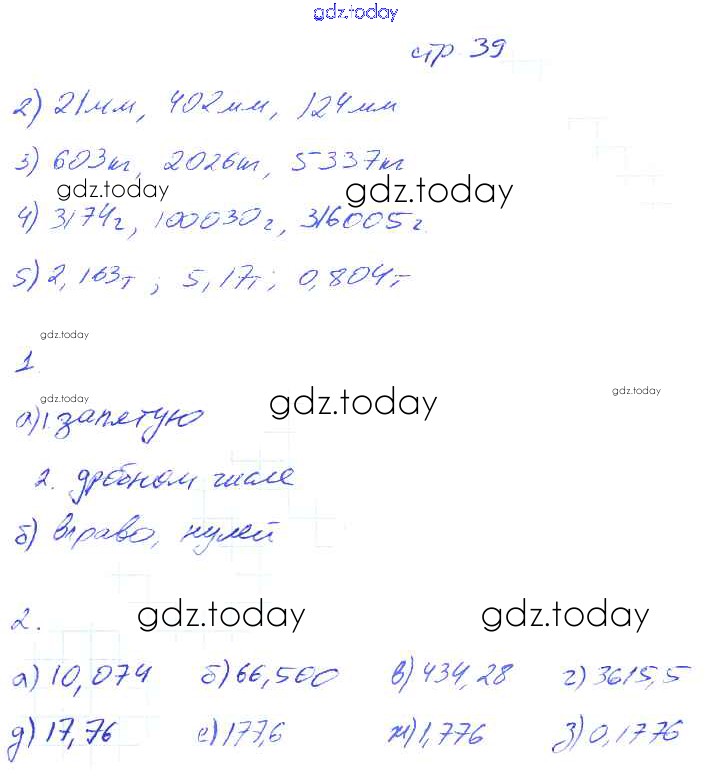 gdz.today
стр 39
2) 21мм, 402мм, 124мм
3) 603кг, 2026кг, 5337кг
gdz.today gdz.today
4) 3174г, 100030г, 316005г.
5) 2,163т; 5,17т; 0,804т
gdz.today
1
gdz.today gdz.today gdz.today
а) 1. запятую
2. дробном числе
б) вправо, нулей
2. gdz.today gdz.today
а) 10,074 б) 66,500 в) 434,28 г) 3615,5
д) 17,76 е) 177,6 ж) 1,776 з) 0,1776